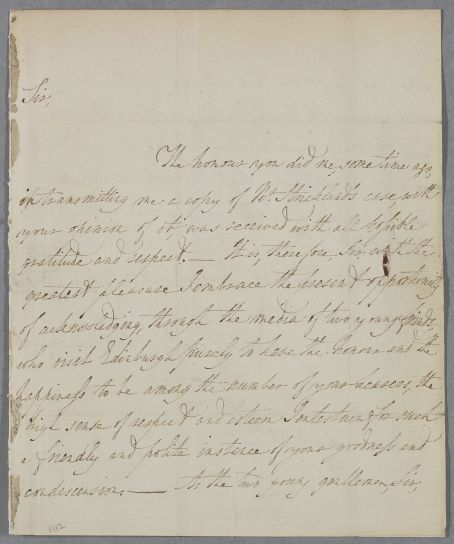 Sir,
The honour you did me, some time ago,
in transmitting me a copy of Mr. Strickland's case with
your opinion of it was received with all possible
gratitude and respect. — It is, therefore, Sir, with the
greatest pleasure I embrace the present opportunity
of acknowledging, through the media of two young friends,
who visit Edinburgh purely to have the honour and the
happiness to be among the number of your hearers, the
high sense of respect and esteem I entertain for such
a friendly and polite instance of your goodness and
condescension. — As the two young gentlemen, Sir,